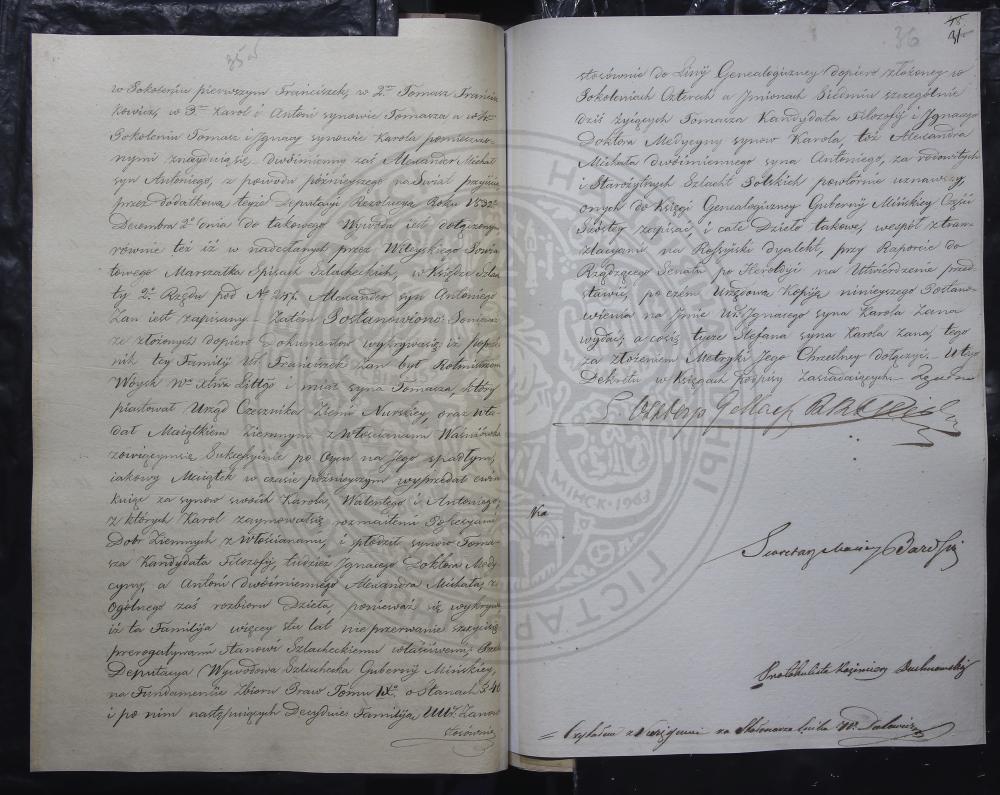 35 v
w Pokoleniu pierwszym Franciszek, w 2m Tomasz Francisz
kowicz, w 3m Karol i Antoni synowie Tomasza a w 4m
Pokoleniu Tomasz i Ignacy synowie Karola pomieszczo
nymi znayduią się dwóimienny zaś Alexander Michał
syn Antoniego, z powodu późnieyszego na Swiat przyiścia
przez dodatkową teyże Deputacyi Rezolucyą Roku 1832
Decembra 2o dnia do takowego Wywodu iest dołączony
rownie też iż w nadesłanych przez Wileyskiego Powia
towego Marszałka Spisach Szlacheckich, w Księdze Szlach
ty 2o Rzędu pod No Alexander syn Antoniego
Zan iest zapisany Zatém Postanowiono: Ponieważ
ze złożonych dopiero Dokumentow wykrywa się iż
nik tey Familij Ur. Franciszek Zan był Rotmistrzem
Woysk Wo Xtwa Littgo i miał syna Tomasza, który
piastował Urząd Czesnika Ziemi Nurskiey, oraz wła
dał Maiątkiem Ziemnym z Włościanami
zowiącym się Sukcessyinie po Oycu na Jego spadłym,
iakowy Maiątek w czasie późnieyszym wyprzedał
kuiąc za synow swoich Karola, Walentego i Antoniego,
z których Karol zaymował się rozmaitemi Possesyami
Dobr Ziemnych z Włościanami, i spłodził synow Toma
sza Kandydata Filozofij, tudzież Ignacego Doktora Medy
cyny, a Antoni dwóimiennego Alexandra Michała, z
Ogólnego zaś rozbioru Dzieła, ponieważ się wykrywa
iż ta Familija więcey stu lat nieprzerwanie szczyci się
prerogatywami Stanowi Szlacheckiemu właściwemi: Przeto
Deputacya Wywodowa Szlachecka Gubernij Mińskiey,
na Fundamencie Zbioru Praw Tomu IXo o Stanach § 40
i po nim następuiących Decyduie: Familiją UUr. Zanow
stosownie
36
31
stosównie do Linij Genealogiczney dopiero złożoney w
Pokoleniach Czterech a Jmionach Siedmiu szczególnie
dziś żyiących Tomasza Kandydata Filozofij i Jgnacego
Doktora Medycyny synow Karola, toż Alexandra
Michała dwóimiennego syna Antoniego, za rodowitych
i Starożytnych Szlachtę Polskich powtórnie uznawszy,
onych do Księgi Genealogiczney Gubernij Mińskiey Części
Szóstey zapisać, i całe Dzieło takowe, wespół z tran-
zlacyami na Rossyiski dyalekt, przy Raporcie do
Rządzącego Senatu po Heroldyi na Utwierdzenie przed
stawić, poczém Urzędową Kopiją ninieyszego Postano-
wienia na Jmie Ur. Jgnacego syna Karola Zana
wydać, a cosię tycze Stefana syna Karola Zana, tego
za złożeniem Metryki Jego Chrzestney dołączyć. U tego
Dekretu w Księgach Podpisy Zasiadaiących
Sekretarz
Protokulista Kazimierz
МІНСК • 1963